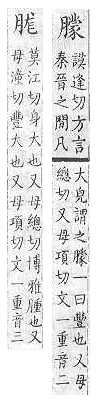 朦
謨逢切方言
秦晉之間凡
大皃謂之朦一曰豐也又母
總切又母項切文一重音二
莫江切身大也又母總切博雅腫也又
母湩切豐大也又母項切文一重音三